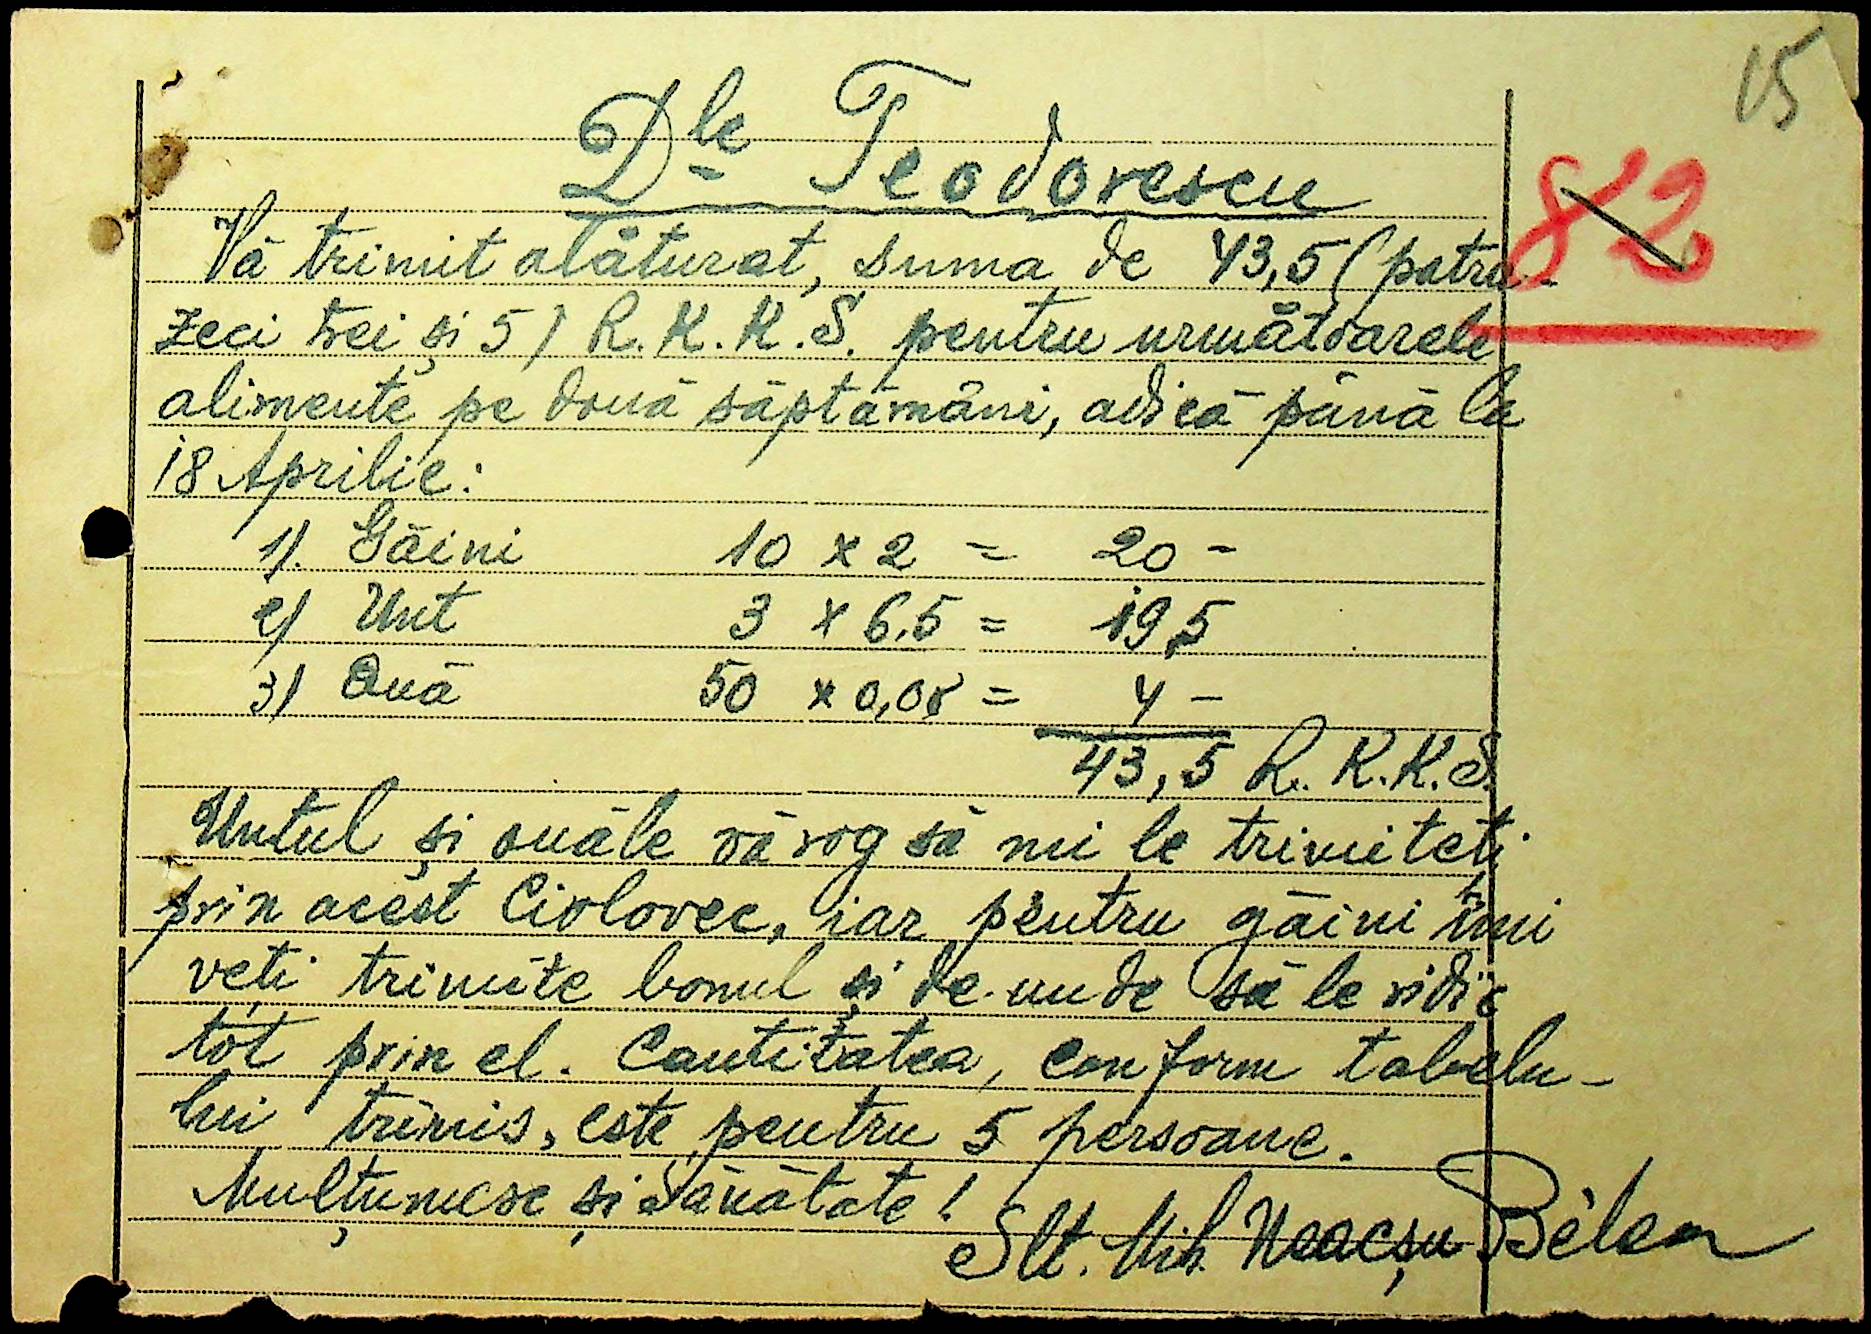 15
82
Dle Teodorescu
Vă trimit alăturat, suma de 43,5 (patru-
zeci trei și 5) R.K.K.S. pentru următoarele
alimente pe două săptămâni, adică până la
18 Aprilie:
1). Găini 10 x 2 = 20 -
2) Unt 3 x 6,5 = 19,5
3) Ouă 50 x 0,08 = 4 -
43,5 R.K.K.S.
Untul și ouăle vă rog să mi le trimiteți
prin acest Ciolovec, iar pentru găini îmi
veți trimite bonul și de unde să le ridic
tot prin el. Cantitatea, conform tabelu-
lui trimis, este pentru 5 persoane.
Mulțumesc și Sănătate!
Slt. Mih. Neacșu